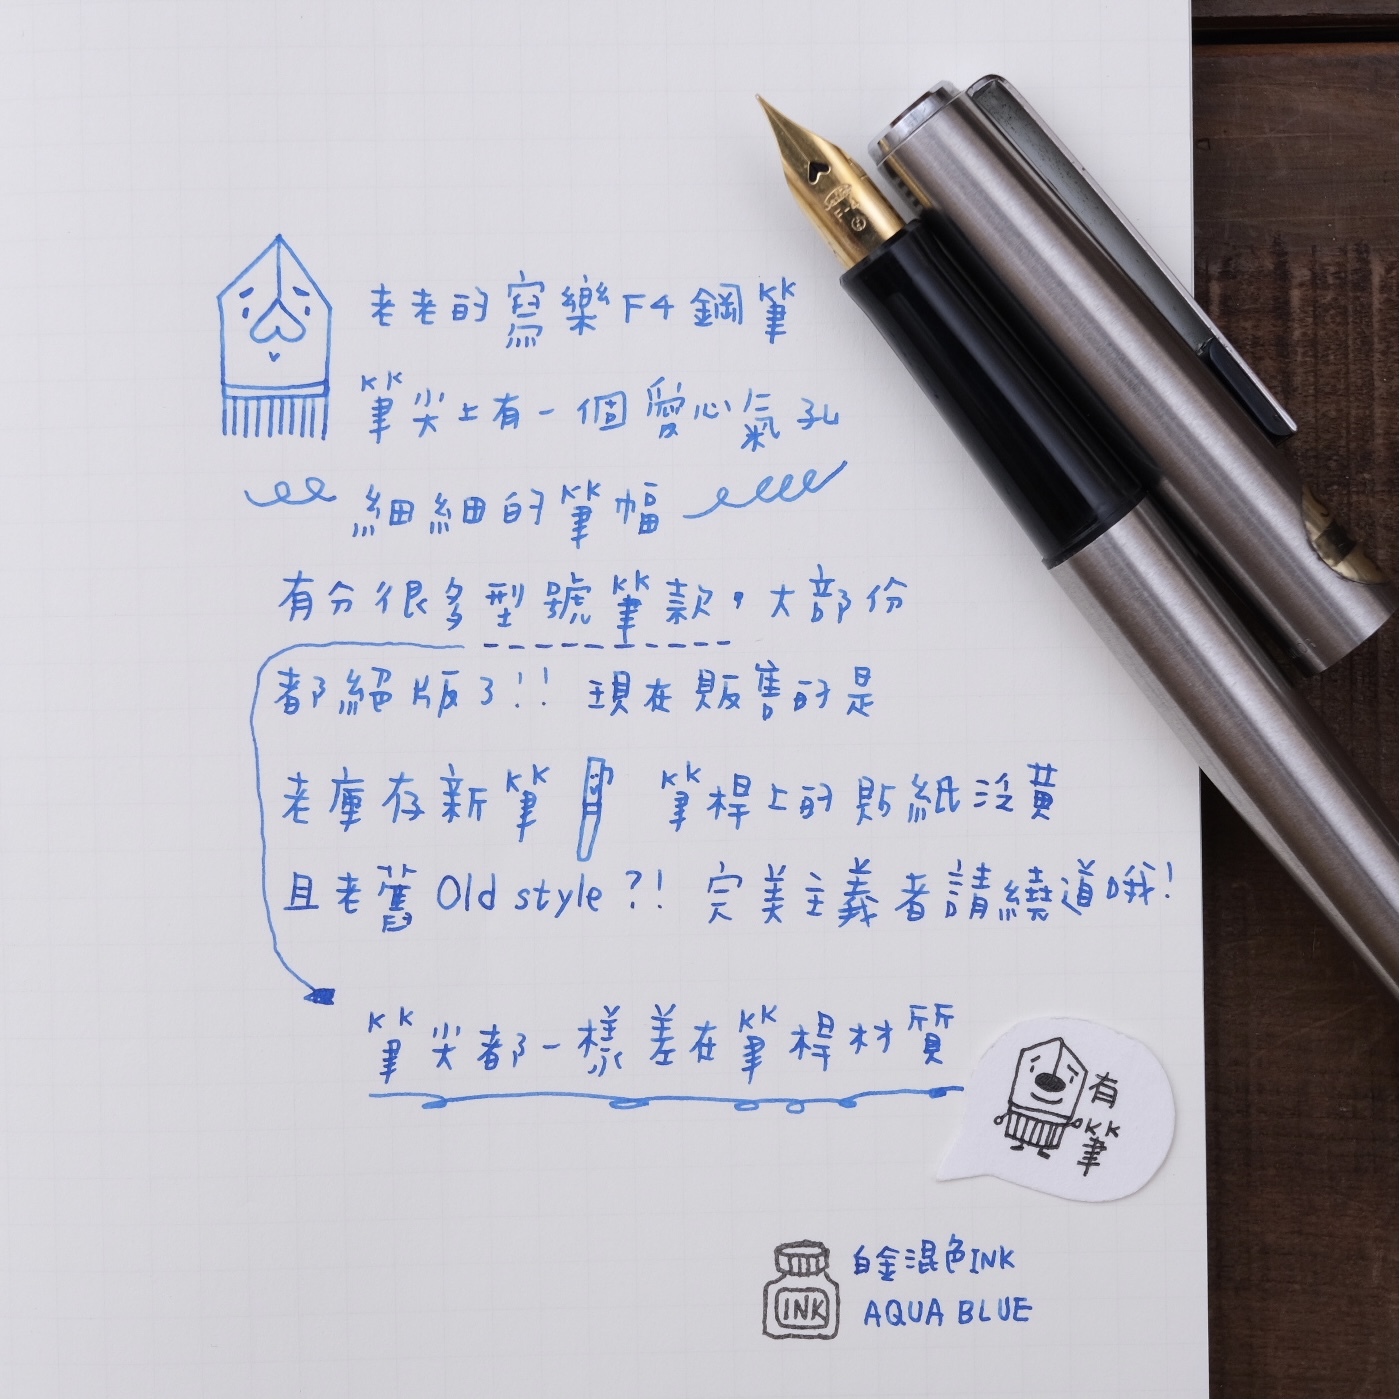 老老的寫樂F4鋼筆
筆尖上有一個愛心氣孔
細細的筆幅
有分很多型號筆款，大部份
都絕版了!! 現在販售的是
老庫存新筆 筆桿上的貼紙泛黃
且老舊 Old style?! 完美主義者請繞道哦!
筆尖都一樣差在筆桿材質
有筆
INK
白金混色INK
AQUA BLUE